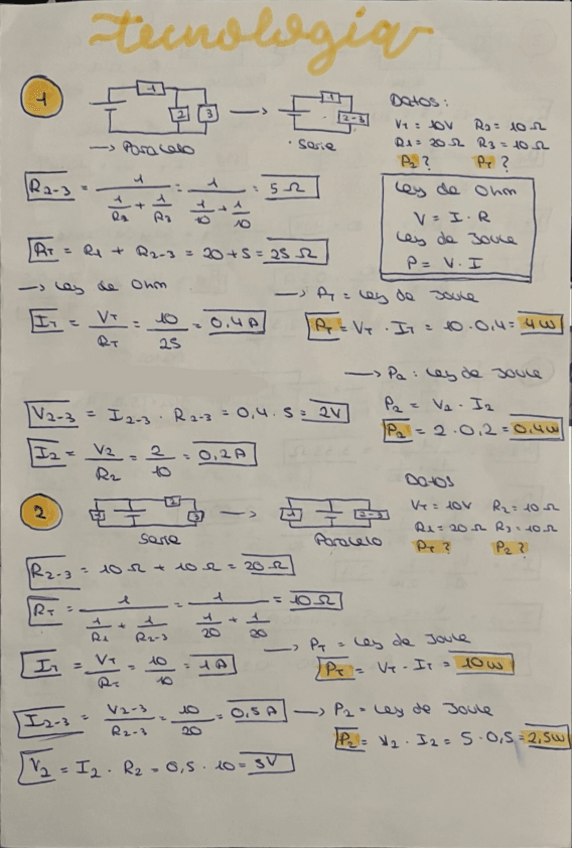 tecnologia
1
1
2
3
→
1
2-3
→ Paralelo
serie
DATOS:
VT = 10V R2 = 10 Ω
R1 = 20 Ω R3 = 10 Ω
P2? PT?
Ley de Ohm
V = I · R
Ley de Joule
P = V · I
R2-3 = 1 / (1/R2 + 1/R3) = 1 / (1/10 + 1/10) = 5 Ω
RT = R1 + R2-3 = 20 + 5 = 25 Ω
→ Ley de Ohm
→ PT = Ley de Joule
IT = VT/RT = 10/25 = 0,4 A
PT = VT · IT = 10 · 0,4 = 4 W
→ P2 : Ley de Joule
V2-3 = I2-3 · R2-3 = 0,4 · 5 = 2V
P2 = V2 · I2
P2 = 2 · 0,2 = 0,4 W
I2 = V2/R2 = 2/10 = 0,2 A
2
→
1
2-3
serie
Paralelo
DATOS
VT = 10V R2 = 10 Ω
R1 = 20 Ω R3 = 10 Ω
PT? P2?
R2-3 = 10 Ω + 10 Ω = 20 Ω
RT = 1 / (1/R1 + 1/R2-3) = 1 / (1/20 + 1/20) = 10 Ω
→ PT = Ley de Joule
IT = VT/RT = 10/10 = 1 A
PT = VT · IT = 10 W
I2-3 = V2-3/R2-3 = 10/20 = 0,5 A
→ P2 = Ley de Joule
P2 = V2 · I2 = 5 · 0,5 = 2,5 W
V2 = I2 · R2 = 0,5 · 10 = 5V